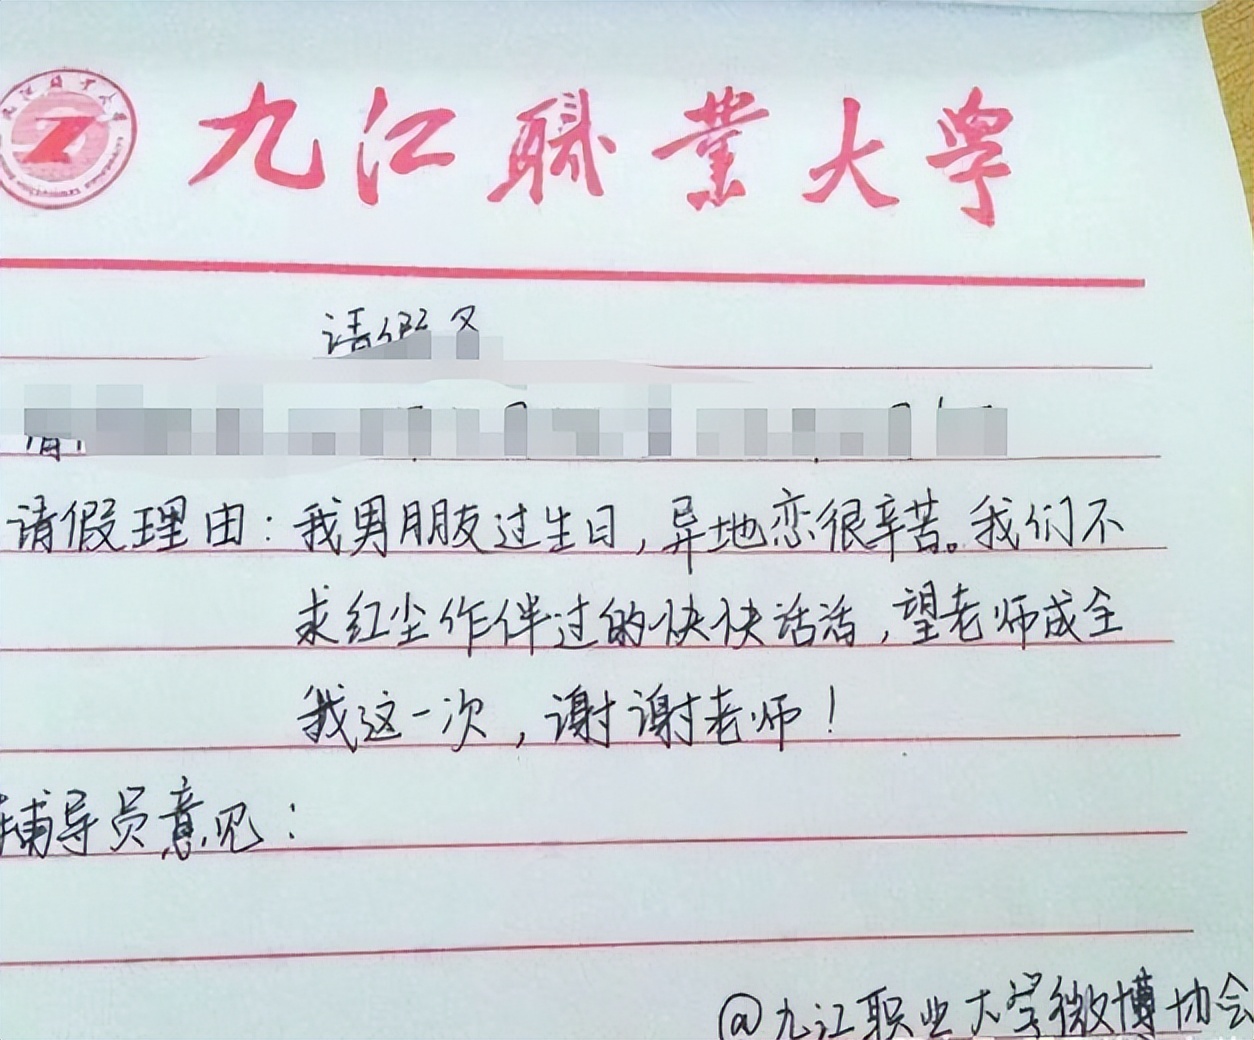 九江职業大学
请假
请假理由：我男朋友过生日，异地恋很辛苦。我们不
求红尘作伴过的快快话话，望老师成全
我这一次，谢谢老师！
辅导员意见：
@九江职业大学微博协会